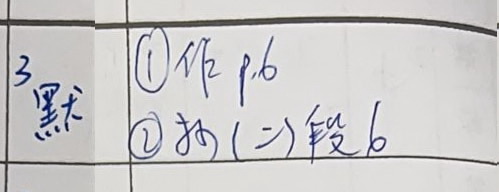 3
默
①作 p.6
②抄(二)段6